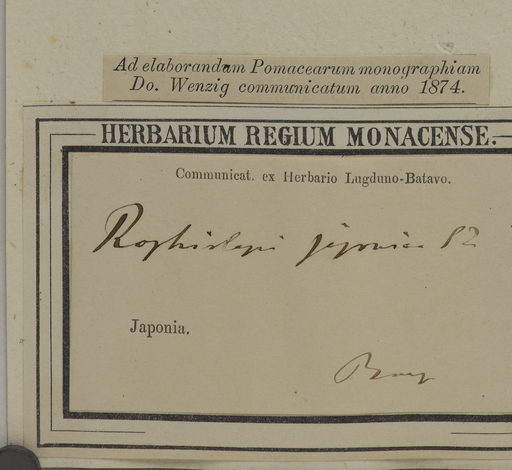 Ad elaborandam Pomacearum monographiam
Do. Wenzig communicatum anno 1874.
HERBARIUM REGIUM MONACENSE.
Communicat. ex Herbario Lugduno-Batavo.
japonica
Japonia.